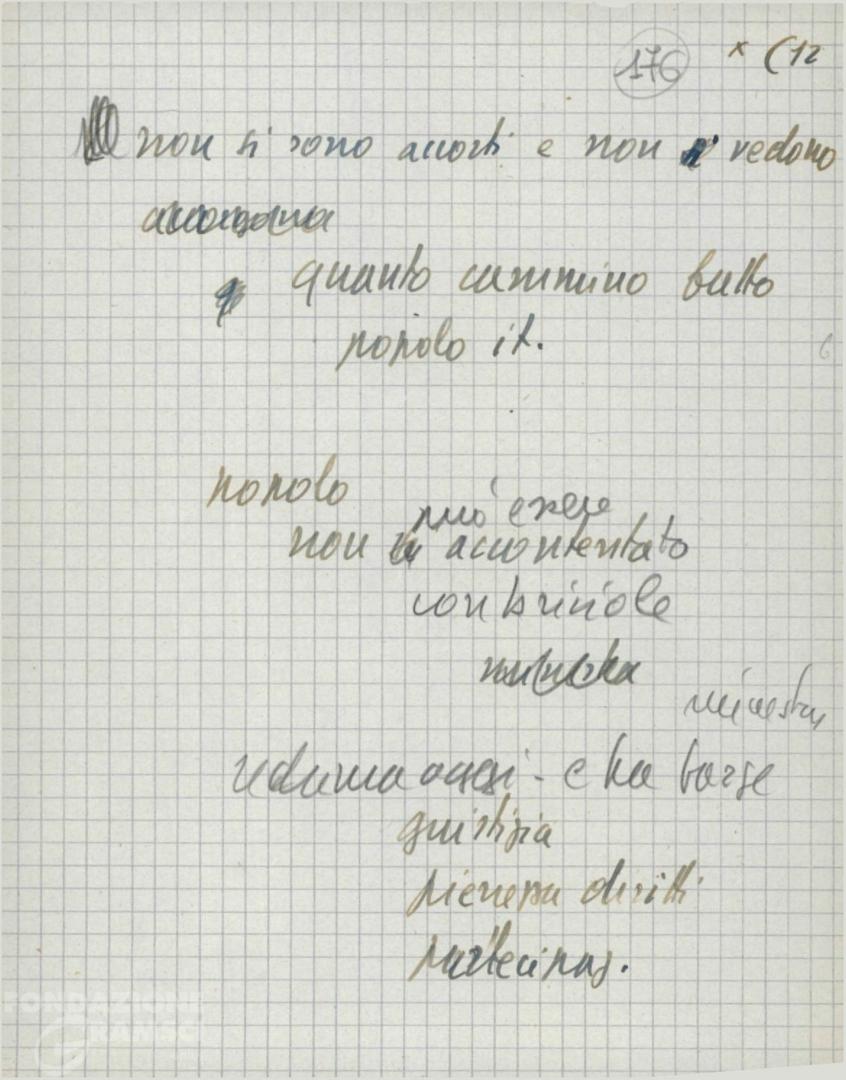 176 x (12
non si sono accorti e non vedono
quanto cammino fatto
popolo it.
popolo
può essere
non accontentato
con briciole
minestra
reclama oggi - e ha forze
giustizia
pienezza diritti
partecipaz.
FONDAZIONE
GRAMSCI